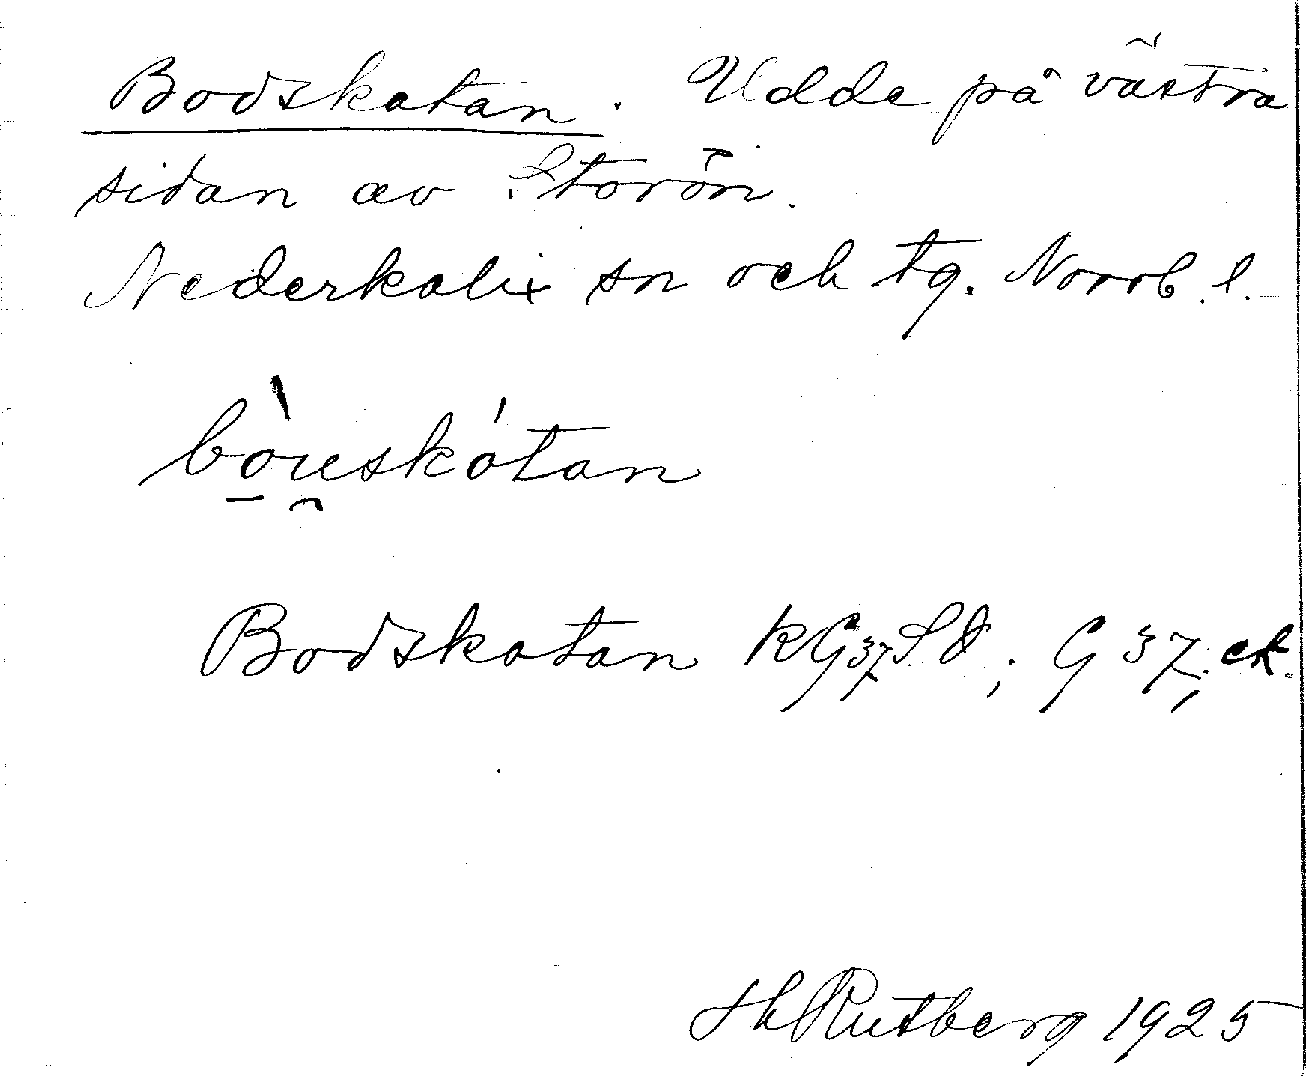 Bodskatan. Udde på västra
sidan av Storön.
Nederkalix sn och tg. Norrb. l.
bo̠u̯skátan
Bodskatan KG37SV; G 37; ek.
Hh Rutberg 1925